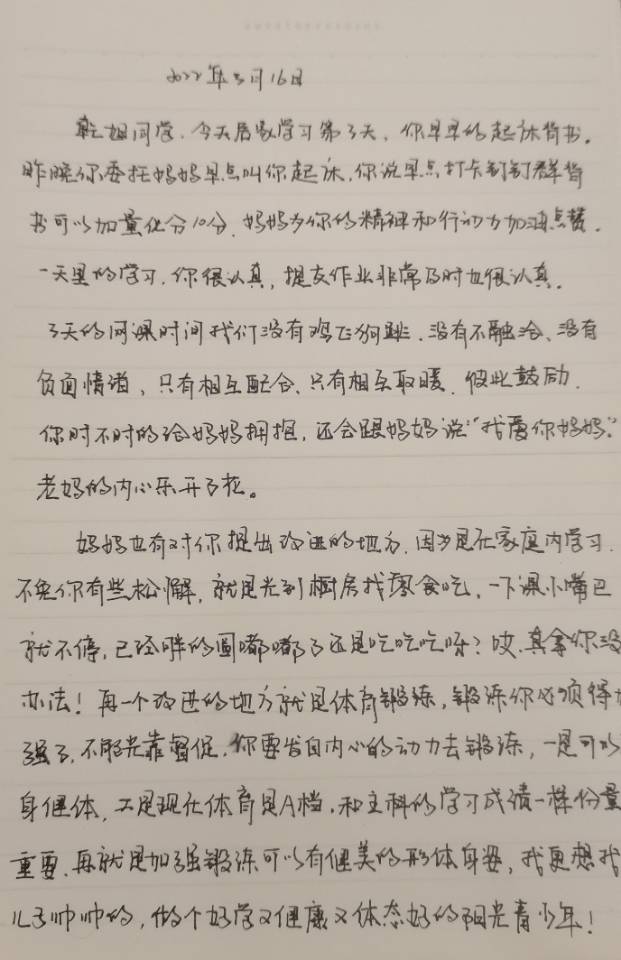 2022年3月16日
同学、今天居家学习第3天，你早早的起床背书。
昨晚你委托妈妈早点叫你起床，你说早点打卡钉钉群背
书可以加量化分10分，妈妈为你的精神和行动力加油点赞。
一天里的学习，你很认真，提交作业非常及时也很认真。
3天的网课时间我们没有鸡飞狗跳、没有不融洽、没有
负面情谱，只有相互配合、只有相互取暖，彼此鼓励，
你时不时的给妈妈拥抱，还会跟妈妈说“我爱你妈妈”
老妈的内心乐开了花。
妈妈也有对你提出改进的地方，因为是在家庭内学习，
不免你有些松懈，就是光到橱房找零食吃，一下课小嘴巴
就不停，已经胖的圆嘟嘟了还是吃吃吃呀？哎，真拿你没
办法！再一个改进的地方就是体育锻炼，锻炼你必须得加
强了，不能光靠督促，你要发自内心的动力去锻炼，一是可以
身健体，二是现在体育是A档，和主科的学习成绩一样份量
重要，再就是加强锻炼可以有健美的形体身姿，我更想我
儿子帅帅的，做个好学又健康又体态好的阳光青少年！